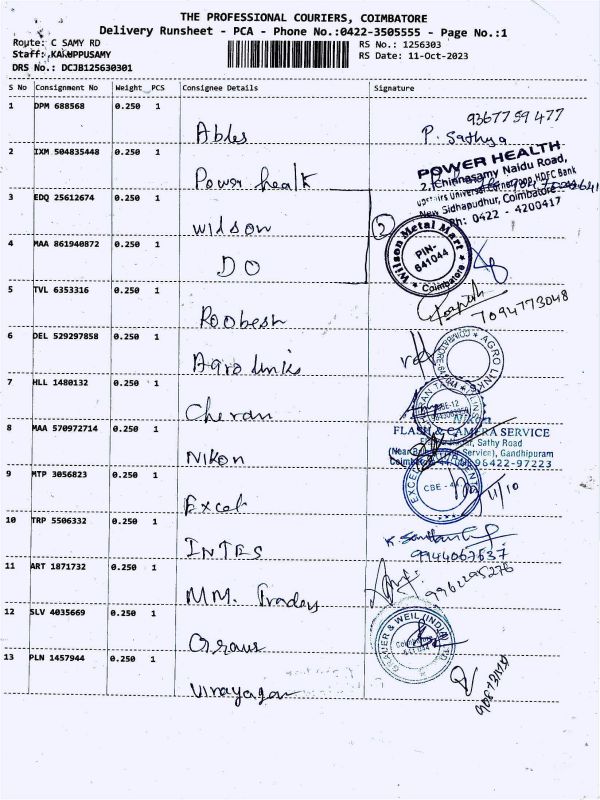 THE PROFESSIONAL COURIERS, COIMBATORE
Delivery Runsheet - PCA - Phone No.:0422-3505555 - Page No.:1
Route: C SAMY RD
RS No.: 1256303
Staff: KARUPPUSAMY
RS Date: 11-Oct-2023
DRS No.: DCJB125630301
S No Consignment No Weight PCS Consignee Details Signature
1 DPM 688568 0.250 1
9367759477
Ables P. Sathya
2 IXM 504835448 0.250 1
Power healt
POWER HEALTH
2, Chinnasamy Naidu Road,
HDFC Bank
New Sidhapudhur, Coimbatore.
Ph: 0422 - 4200417
3 EDQ 25612674 0.250 1
Wilson
2
Wilson Metal Mart
PIN-
641044
Coimbatore
4 MAA 861940872 0.250 1
DO
5 TVL 6353316 0.250 1
Roobesh
7094773048
6 DEL 529297858 0.250 1
Agro links
AGRO LINKS
7 HLL 1480132 0.250 1
Cheran
8 MAA 570972714 0.250 1
FLASH & CAMERA SERVICE
Sathy Road
Service), Gandhipuram
96422-97223
Nikon
9 MTP 3056823 0.250 1
Excel
EXCEL
CBE - 4
11/10
10 TRP 5506332 0.250 1
INTES
9944067637
11 ART 1871732 0.250 1
MM. Traders
12 SLV 4035669 0.250 1
GRAUER & WEIL (INDIA)
13 PLN 1457944 0.250 1
Vinayagan